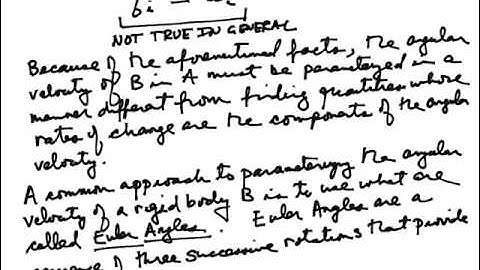 NOT TRUE IN GENERAL
Because of the aforementioned facts, the agular
velocity of B in A must be parameterized in a
manner different from finding quantities whose
rates of change are the components of the angular
velocity.
A common approach to parameterizing the angular
velocity of a rigid body B is to use what are
called Euler Angles. Euler Angles are a
sequence of three successive rotations that provide